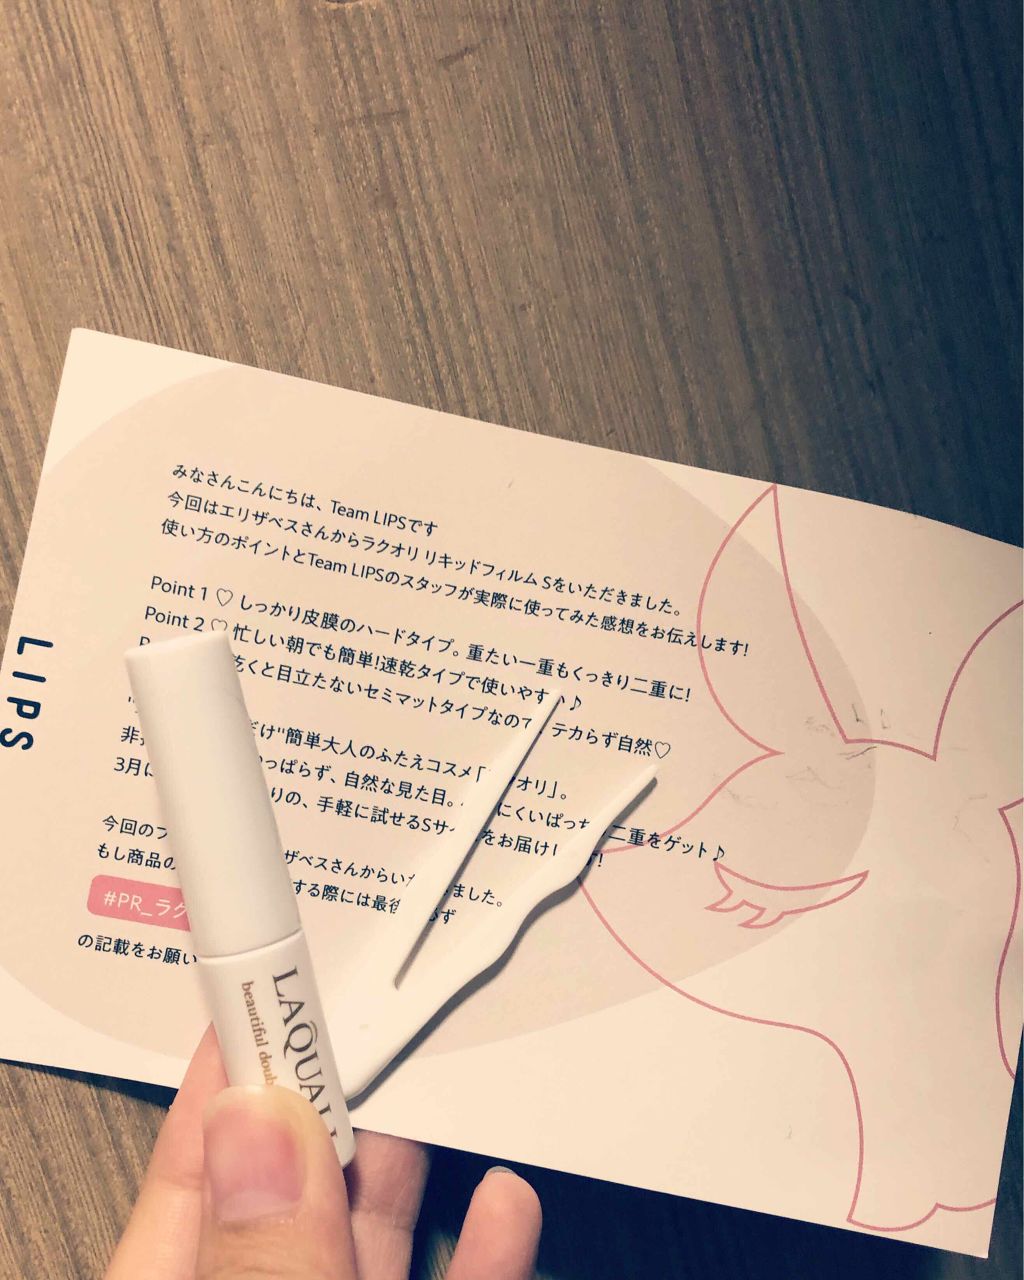 みなさんこんにちは、Team LIPSです
今回はエリザベスさんからラクオリ リキッドフィルム Sをいただきました。
使い方のポイントとTeam LIPSのスタッフが実際に使ってみた感想をお伝えします!
Point 1 ♡ しっかり皮膜のハードタイプ。重たい一重もくっきり二重に!
Point 2 ♡ 忙しい朝でも簡単!速乾タイプで使いやす ♪
乾くと目立たないセミマットタイプなので テカらず自然♡
だけ"簡単大人のふたえコスメ「 オリ」。
非 つっぱらず、自然な見た目。 にくいぱっち 二重をゲット♪
3月に りの、手軽に試せるSサイ をお届けし す!
今回のプ ザベスさんからいた ました。
もし商品の する際には最後 必ず
#PR_ラク
の記載をお願い
LIPS
LAQUALI
beautiful doub